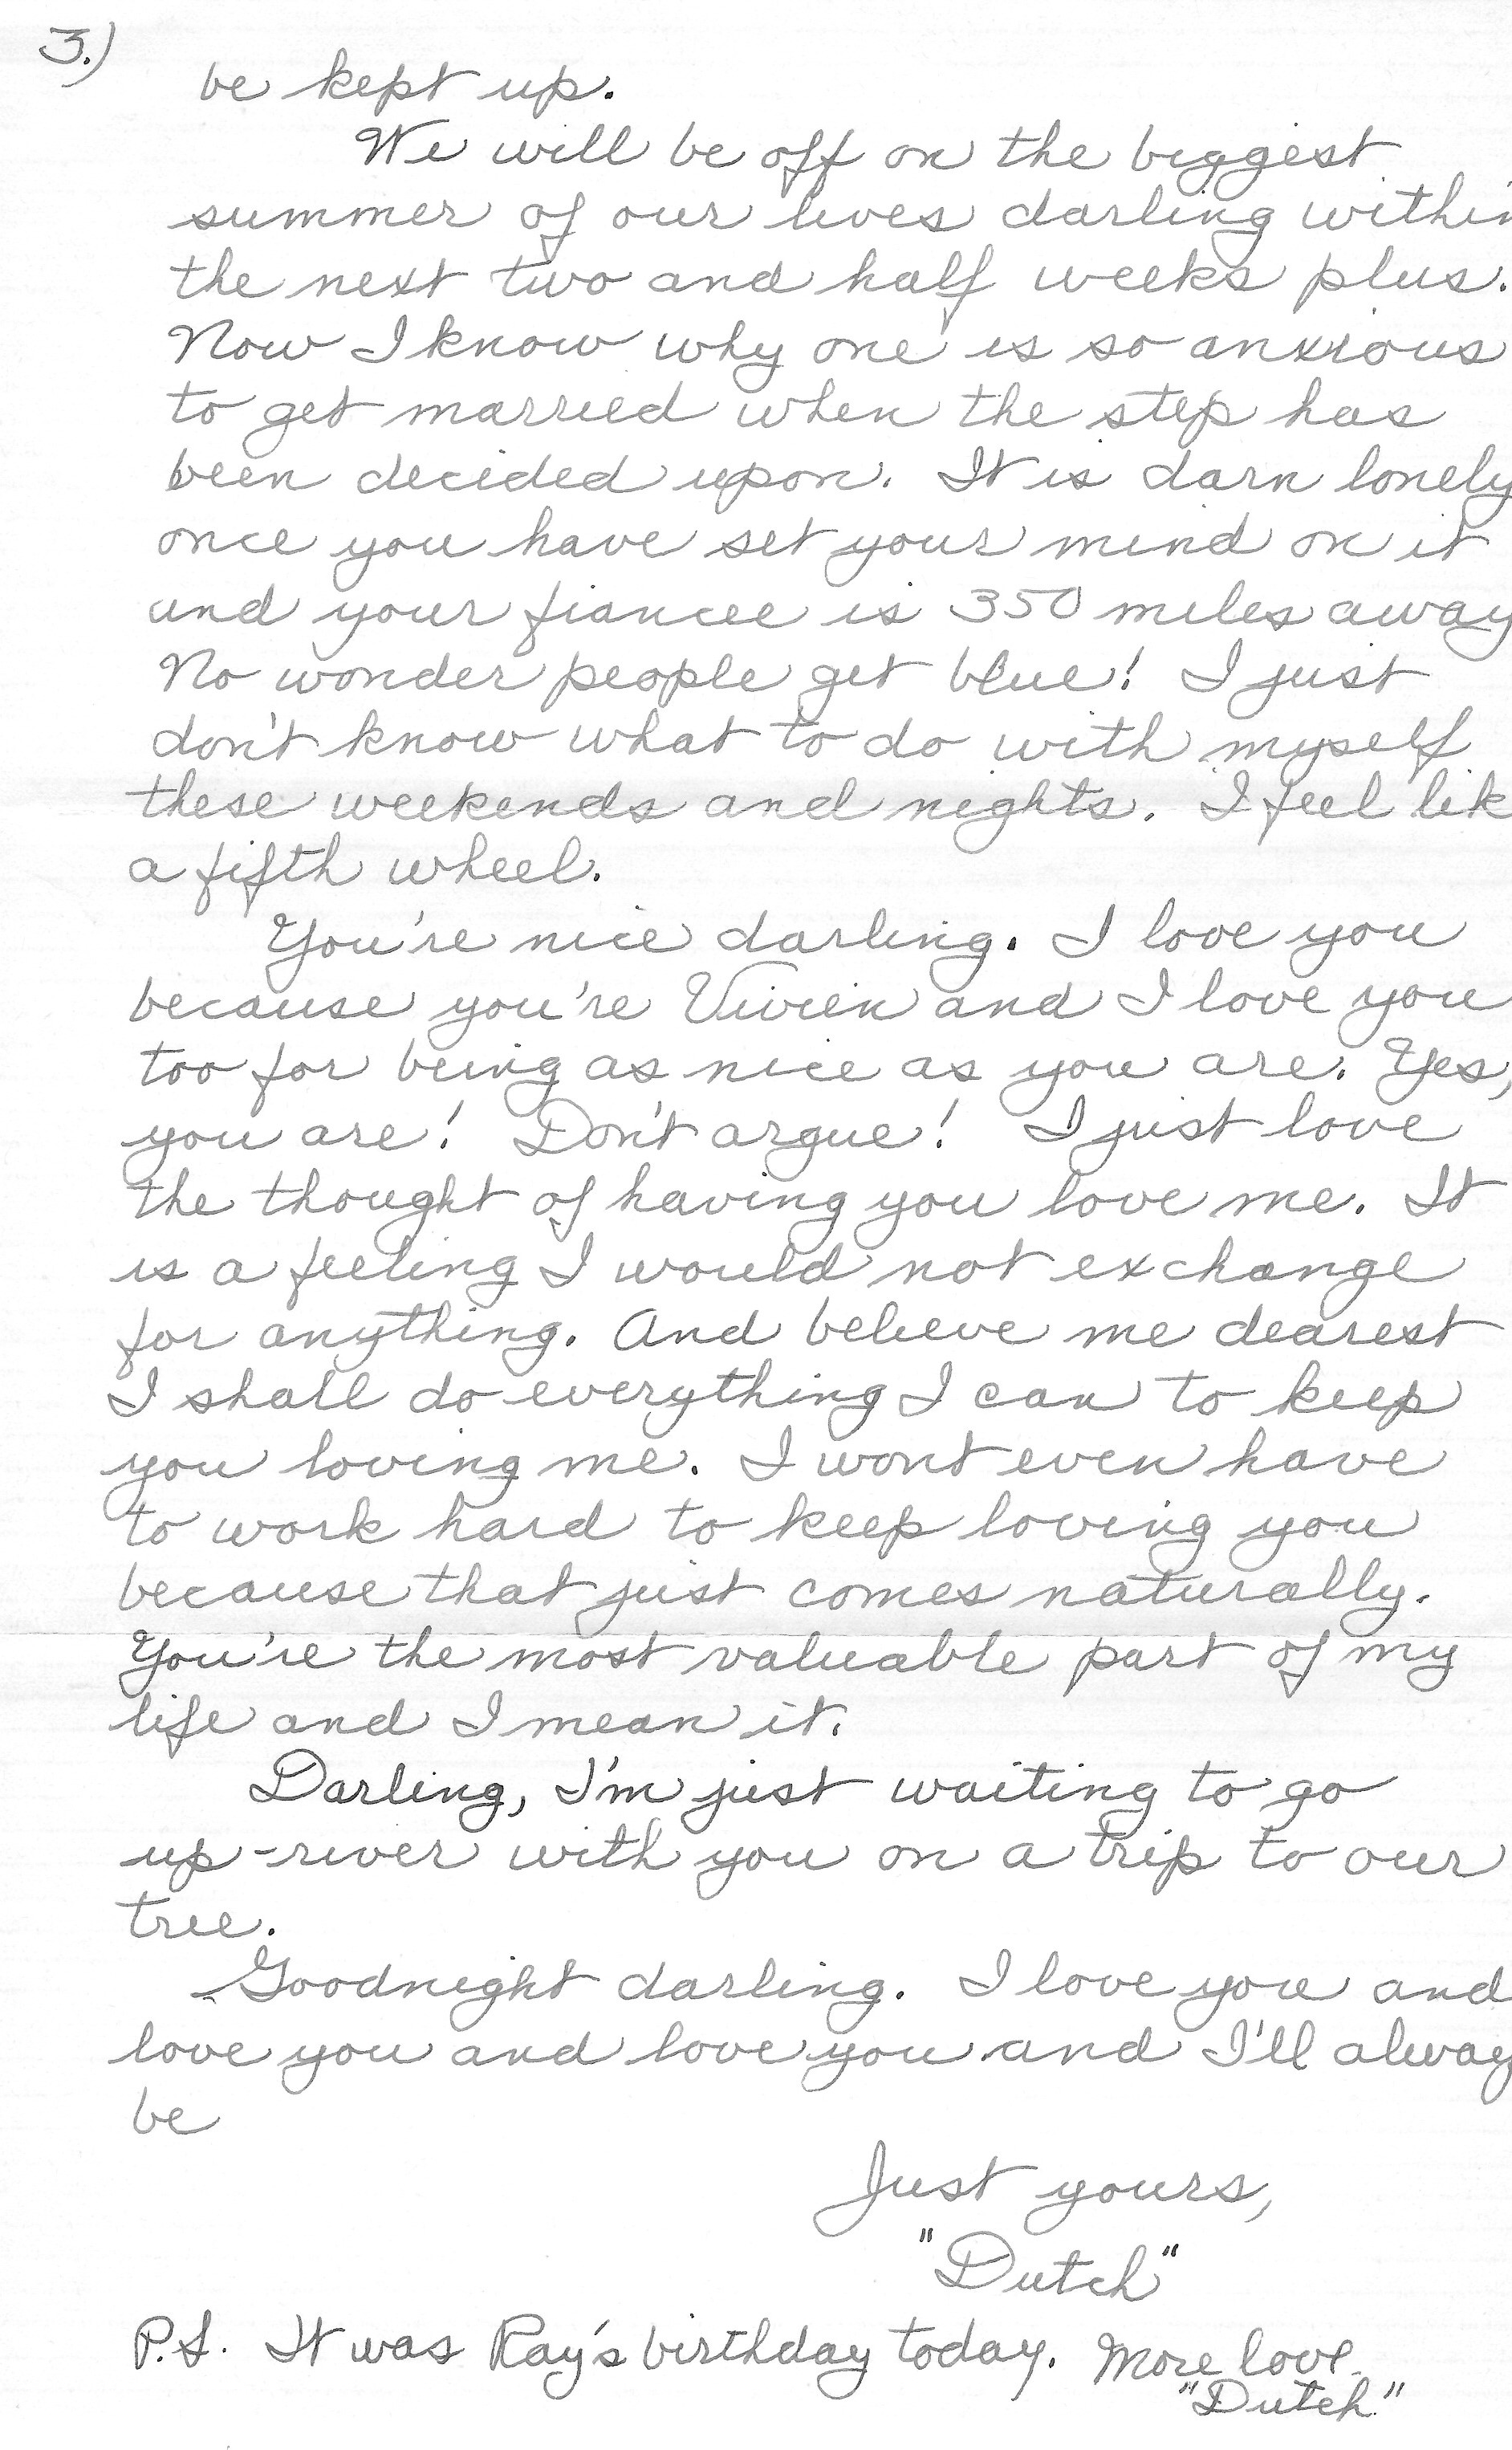 3.)
be kept up.
We will be off on the biggest
summer of our lives darling within
the next two and half weeks plus.
Now I know why one is so anxious
to get married when the step has
been decided upon. It is darn lonely
once you have set your mind on it
and your fiancee is 350 miles away
No wonder people get blue! I just
don't know what to do with myself
these weekends and nights. I feel lik
a fifth wheel.
You're nice darling. I love you
because you're Vivien and I love you
too for being as nice as you are. Yes,
you are! Don't argue! I just love
the thought of having you love me. It
is a feeling I would not exchange
for anything. And believe me dearest
I shall do everything I can to keep
you loving me. I wont even have
to work hard to keep loving you
because that just comes naturally.
You're the most valuable part of my
life and I mean it.
Darling, I'm just waiting to go
up-river with you on a trip to our
tree.
Goodnight darling. I love you and
love you and love you and I'll alway
be
Just yours,
"Dutch"
P.S. It was Ray's birthday today. More love
"Dutch"